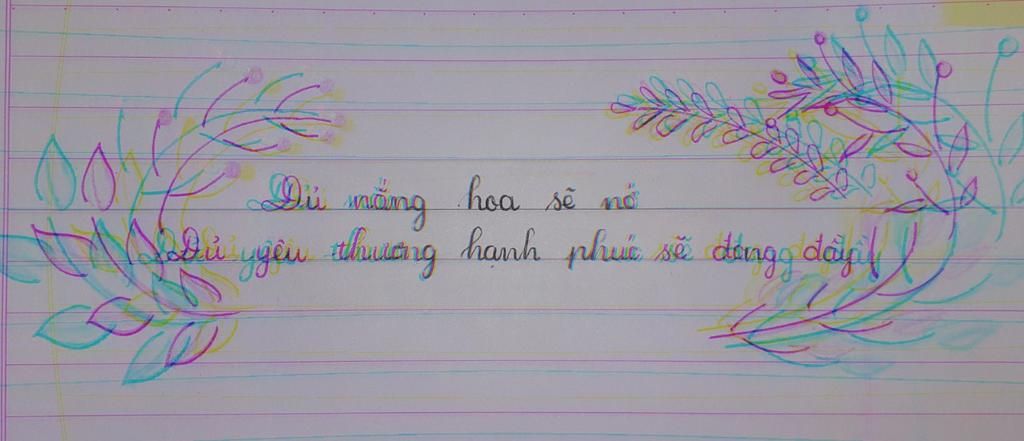 Đủ nắng hoa sẽ nở
Đủ yêu thương hạnh phúc sẽ đong đầy